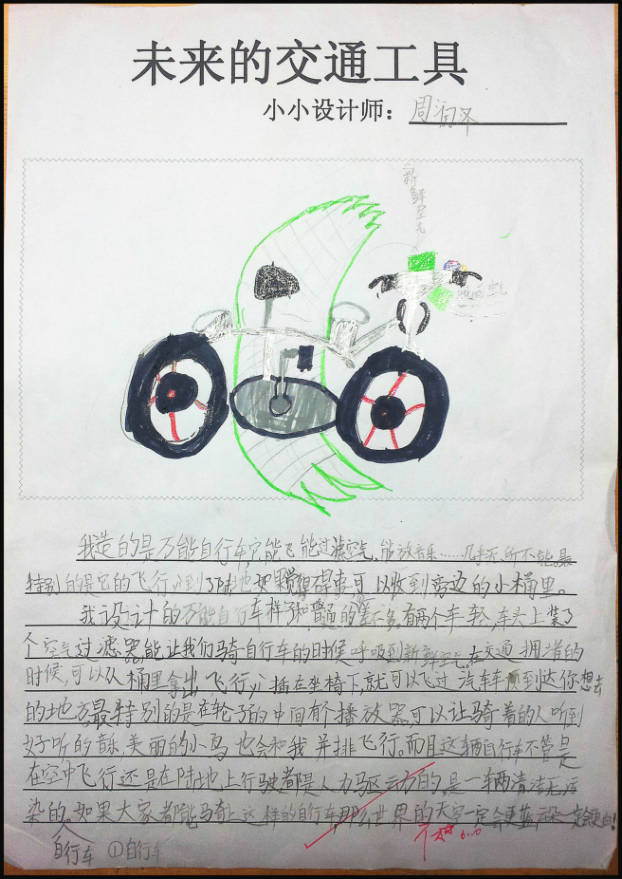 未来的交通工具
小小设计师：周润泽
新鲜空气
空气
我造的是万能自行车它能飞能过滤空气，能放音乐……几乎无所不能，最
特别的是它的飞行，到了陆地如果觉得累可以收到旁边的小桶里。
我设计的万能自行车样子和普通的差不多，有两个车轮，车头上装了
个空气过滤器能让我们骑自行车的时候呼吸到新鲜空气。在交通拥堵的
时候，可以从桶里拿出飞行，插在坐椅下，就可以飞过汽车顺到达你想去
的地方。最特别的是在轮子的中间有个播放器可以让骑着的人听到
好听的音乐，美丽的小鸟也会和我并排飞行。而且这辆自行车不管是
在空中飞行还是在陆地上行驶都是人力驱动的，是一辆清洁无污
染的。如果大家都能骑上这样的自行车，那么世界的天空一定会更蓝，云朵一定会更白！
自行车 ①自行车